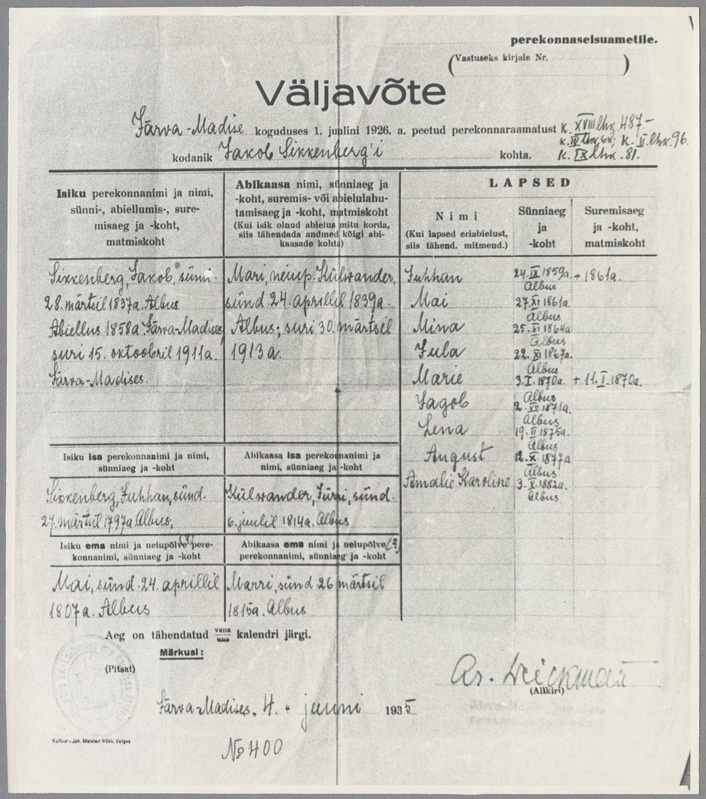 perekonnaseisuametile.
(Vastuseks kirjale Nr. )
Väljavõte
Järva-Madise koguduses 1. juulini 1926. a. peetud perekonnaraamatust K. XVIII lhk. 487-
K. II lhk. 96.
kodanik Jakob Sikkenberg'i kohta. K. IX lhk. 81.
Isiku perekonnanimi ja nimi, sünni-, abiellumis-, suremisaeg ja -koht, matmiskoht
Abikaasa nimi, sünniaeg ja -koht, suremis- või abielulahutamisaeg ja -koht, matmiskoht
(Kui isik olnud abielus mitu korda, siis tähendada andmed kõigi abikaasade kohta)
LAPSED
Nimi
(Kui lapsed eriabielust, siis tähend. mitmend.)
Sünniaeg ja -koht
Suremisaeg ja -koht, matmiskoht
Sikkenberg, Jakob sünn.
28. märtsil 1837a. Albus
Abiellus 1858a. Järva-Madises
suri 15. oktoobril 1911a.
Järva-Madises.
Mari, neiup. Külwander,
sünd. 24. aprillil 1839a.
Albus; suri 30. märtsil
1913a.
Juhhan 24. IX 1859a. + 1861a.
Albus
Mai 27. XI 1861a.
Albus
Mina 25. XI 1864a.
Albus
Jula 22. XI 1867a.
Albus
Marie 3. I. 1870a. + 11. I. 1870a.
Albus
Jagob 2. VII 1871a.
Albus
Lena 19. II 1875a.
Albus
August 12. X. 1877a
Albus
Amalie Karoline 3. X. 1882a.
Albus.
Isiku isa perekonnanimi ja nimi, sünniaeg ja -koht
Abikaasa isa perekonnanimi ja nimi, sünniaeg ja -koht
Sikkenberg, Juhhan, sünd.
27. märtsil 1797a. Albus,
Külwander, Jürri, sünd.
6. juulil 1814a. Albus
Isiku ema nimi ja neiupõlve perekonnanimi, sünniaeg ja -koht
Abikaasa ema nimi ja neiupõlve perekonnanimi, sünniaeg ja -koht
Mai, sünd. 24. aprillil
1807a. Albus
Marri, sünd 26 märtsil
1815a. Albus
Aeg on tähendatud vana uue kalendri järgi.
Märkusi:
(Pitsat)
(Allkiri)
Järva-Madises, 4. juuni 1935
№ 400